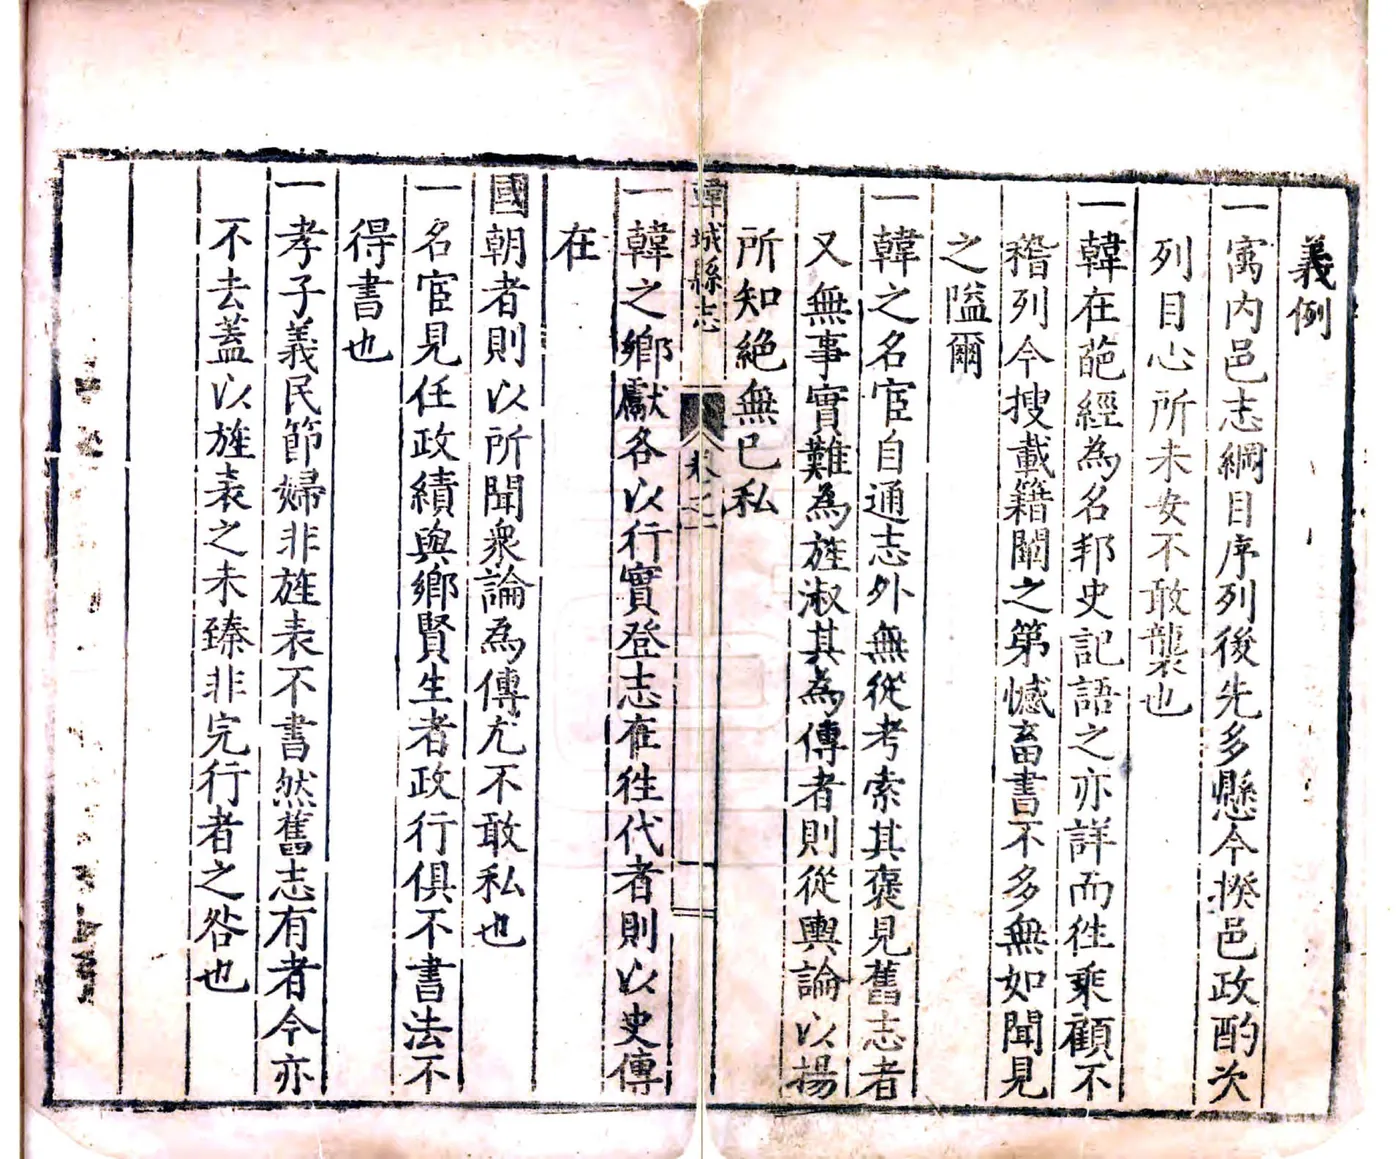 義例
一寓内邑志綱目序列後先多懸今揆邑政酌次
列目心所未安不敢襲也
一韓在葩經為名邦史記語之亦詳而徃乘顧不
稽列今搜載籍闡之第憾畜書不多無如聞見
之隘爾
一韓之名宦自通志外無從考索其褒見舊志者
又無事實難為旌淑其為傳者則從輿論以揚
所知絶無已私
韓城縣志 卷之一
一韓之鄉獻各以行實登志在徃代者則以史傳
在
國朝者則以所聞衆論為傳尤不敢私也
一名宦見任政績與鄉賢生者政行俱不書法不
得書也
一孝子義民節婦非旌表不書然舊志有者今亦
不去蓋以旌表之未臻非完行者之咎也